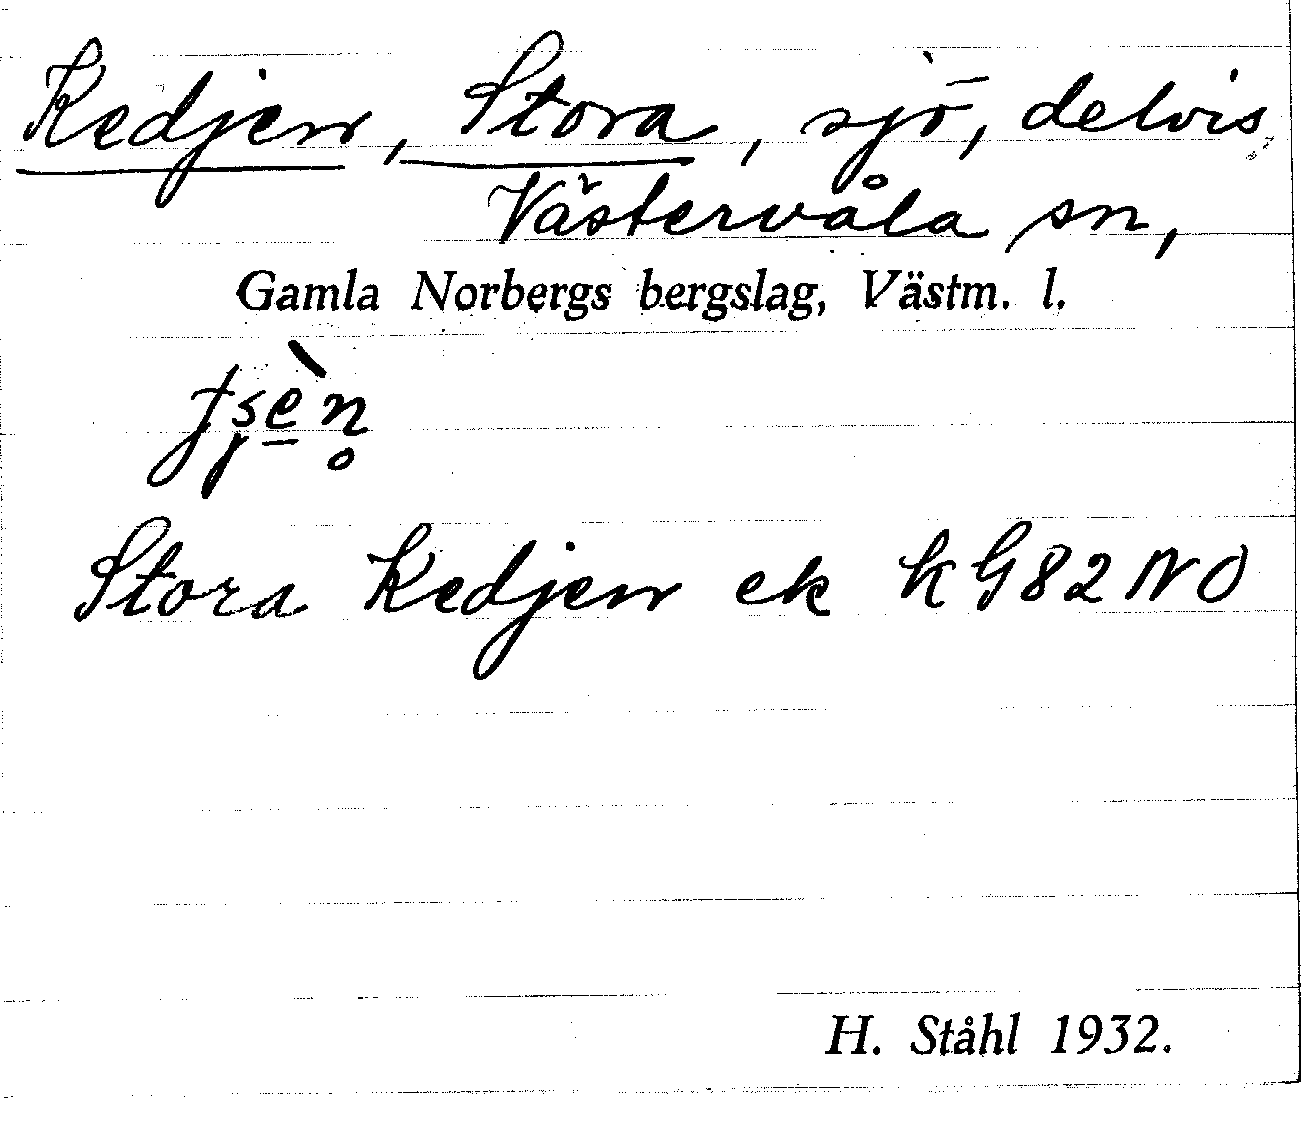 Kedjen, Stora, sjö, delvis
Västervåla sn,
Gamla Norbergs bergslag, Västm. l.
Stora Kedjen ek kG82NO
H. Ståhl 1932.